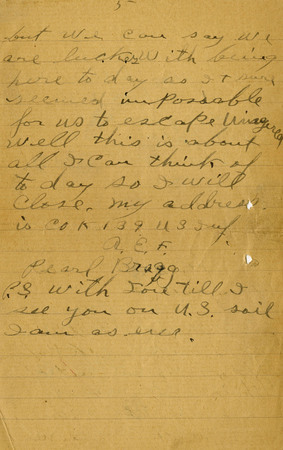 5
but we can say we
are lucky with being
here to day as it sure
seemed impossable
for us to escape
Well this is about
all I can think of
to day so I will
close. my address.
is Co K 139 U S Inf
A. E. F.
Pearl Bragg
P.S. With love till I
see you on U.S. soil
I am as ever.